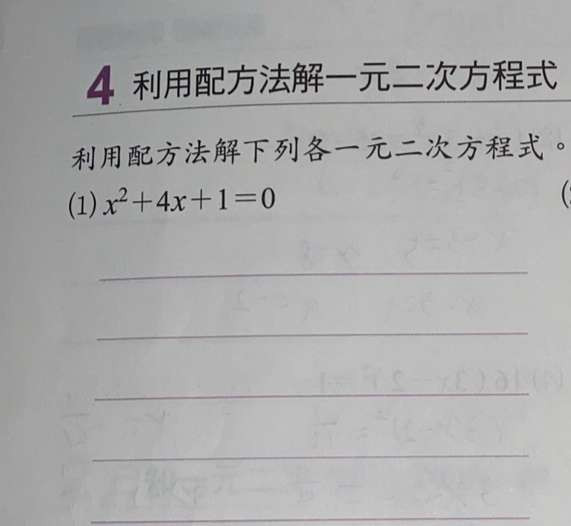 4 利用配方法解一元二次方程式
利用配方法解下列各一元二次方程式。
(1) x²+4x+1=0